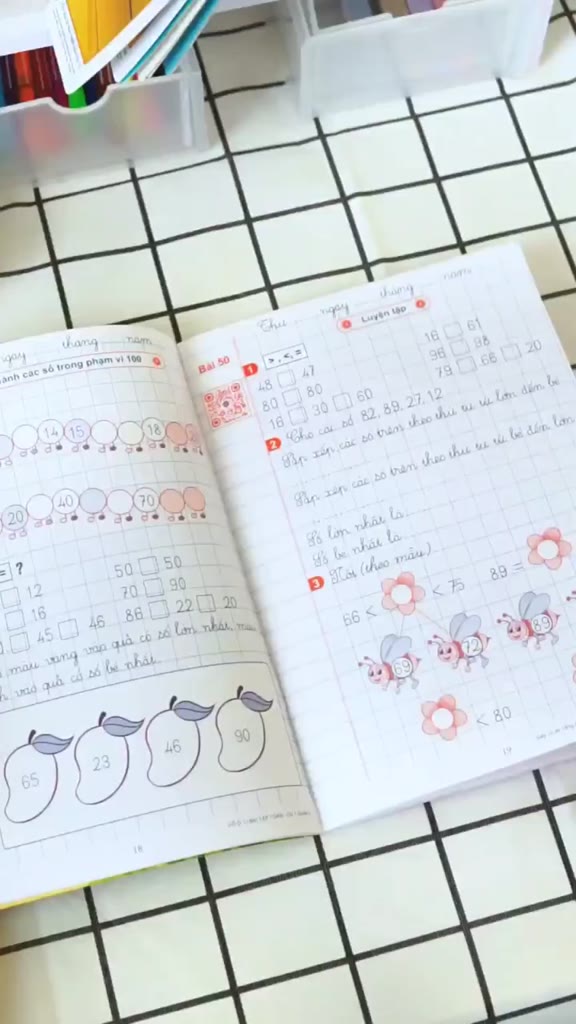 ngày tháng năm
sánh các số trong phạm vi 100
14 15 18
20 40 70
= ?
12 50 50
16 70 90
45 46 86 22 20
màu vàng vào quả có số lớn nhất, màu
vào quả có số bé nhất.
65 23 46 90
18
Thứ ngày tháng năm
Luyện tập
Bài 50
1 >, <, =
48 47 16 61
80 80 96 98
16 30 60 79 66 20
2 Cho các số 82, 89, 27, 12
Sắp xếp các số trên theo thứ tự từ lớn đến bé
Sắp xếp các số trên theo thứ tự từ bé đến lớn
Số lớn nhất là
Số bé nhất là
3 Nối (theo mẫu)
66 < < 75 89 =
69 72 89
< 80
19